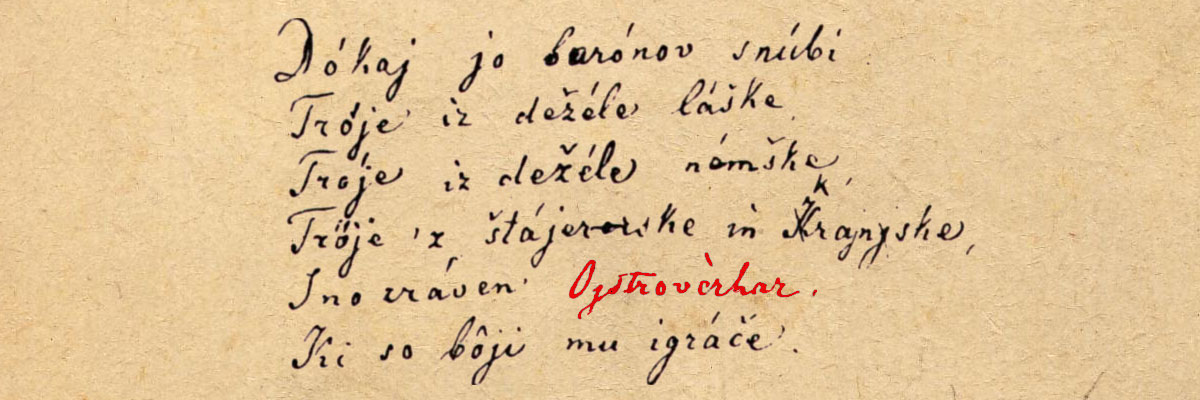 Dókaj jo barónov snúbi
Tróje iz dežéle láške,
Tróje iz dežéle némške,
Tróje 'z štájerske in Krajnjske,
Ino zráven Ojstrovèrhar.
Ki so bôji mu igráče.